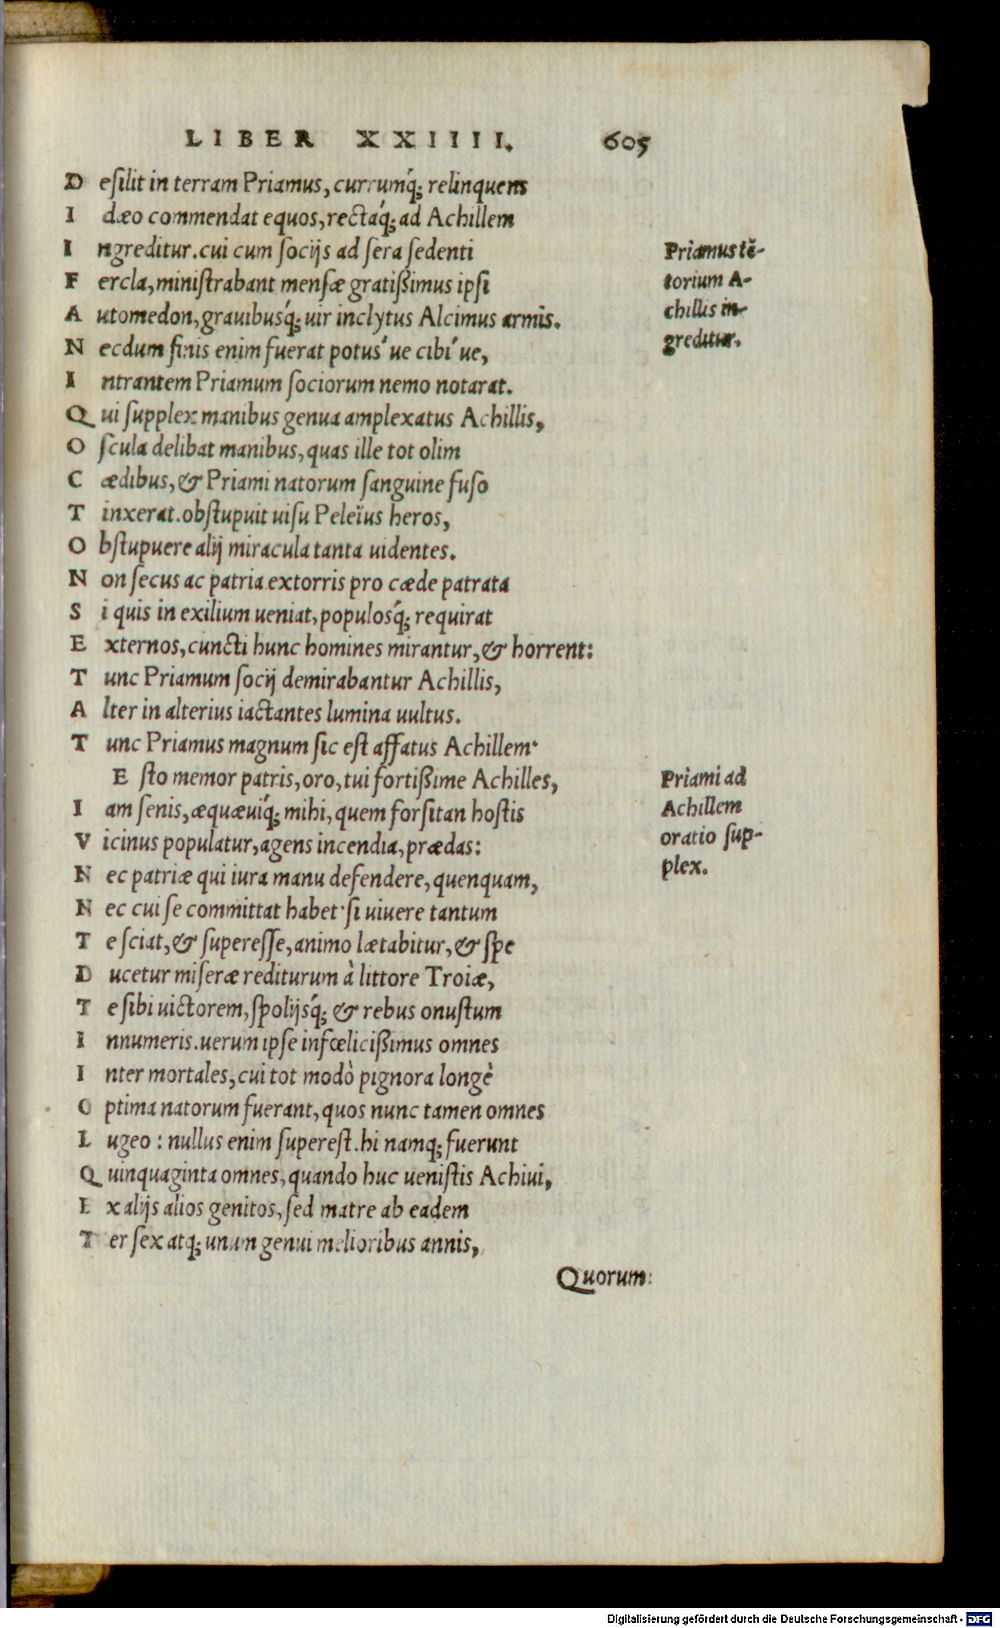 LIBER XXIIII. 605
Desilit in terram Priamus, currumq́; relinquens
Idæo commendat equos, rectaq́; ad Achillem
Ingreditur. cui cum socijs ad sera sedenti
Fercla, ministrabant mensæ gratißimus ipsi
Automedon, grauibusq́; uir inclytus Alcimus armis.
Necdum finis enim fuerat potus'ue cibi'ue,
Intrantem Priamum sociorum nemo notarat.
Qui supplex manibus genua amplexatus Achillis,
Oscula delibat manibus, quas ille tot olim
Cædibus, & Priami natorum sanguine fuso
Tinxerat. obstupuit uisu Peleïus heros,
Obstupuere alij miracula tanta uidentes.
Non secus ac patria extorris pro cæde patrata
Si quis in exilium ueniat, populosq́; requirat
Externos, cuncti hunc homines mirantur, & horrent:
Tunc Priamum socij demirabantur Achillis,
Alter in alterius iactantes lumina uultus.
Tunc Priamus magnum sic est affatus Achillem·
Esto memor patris, oro, tui fortißime Achilles,
Iam senis, æquæuiq́; mihi, quem forsitan hostis
Vicinus populatur, agens incendia, prædas:
Nec patriæ qui iura manu defendere, quenquam,
Nec cui se committat habet· si uiuere tantum
Te sciat, & superesse, animo lætabitur, & spe
Ducetur miseræ rediturum à littore Troiæ,
Te sibi uictorem, spolijsq́; & rebus onustum
Innumeris. uerum ipse infœlicißimus omnes
Inter mortales, cui tot modò pignora longè
Optima natorum fuerant, quos nunc tamen omnes
Lugeo: nullus enim superest. hi namq; fuerunt
Quinquaginta omnes, quando huc uenistis Achiui,
Ex alijs alios genitos, sed matre ab eadem
Ter sex atq; unum genui melioribus annis,
Quorum
Priamus tẽ-
torium A-
chillis in-
greditur.
Priami ad
Achillem
oratio sup-
plex.
Digitalisierung gefördert durch die Deutsche Forschungsgemeinschaft - DFG